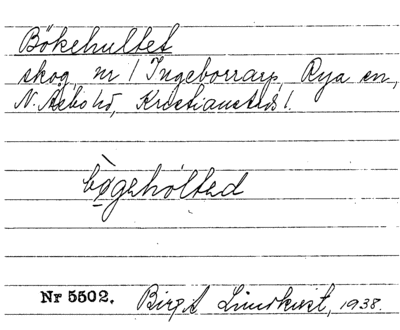 Bökehultet
skog, nr 1 Ingeborrarp, Rya sn,
N. Åsbo hd, Kristianstads l.
bø̀gehòlted
Nr 5502. Birgit Lindkvist, 1938.